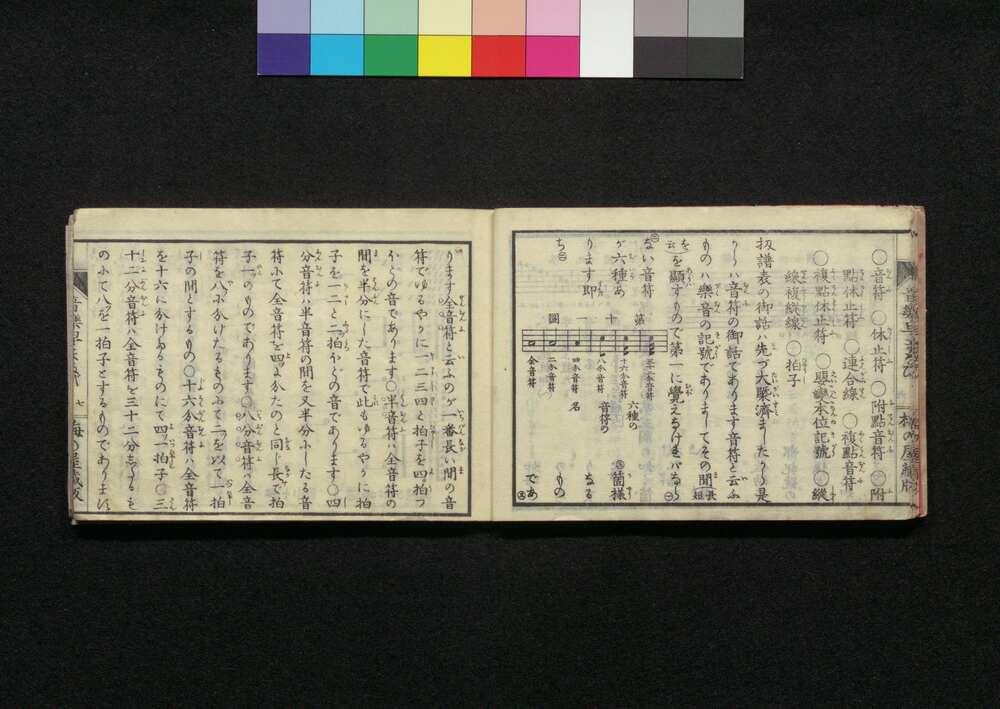 ○音符 ○休止符 ○附點音符 ○附
點休止符 ○連合線 ○複點音符
○複點休止符 ○變嬰本位記號 ○縱
線複縱線 ○拍子
扨譜表の御話ハ先づ大槩濟ましたから是
からハ音符の御話であります音符と云ふ
ものハ樂音の記號でありましてその長短
を顯すもので第一に覺えるべき
ない音符
が六種あ
ります即
ち
第十一圖
全音符
二分音符
四分音符
八分音符
十六分音符
三十二分音符
六種の
音符の
名
箇樣
なる
もの
であ
ります全音符と云ふのが一番長い間の音
符でゆるやかに一二三四と拍子を四拍つ
ほどの音であります○半音符ハ全音符の
間を半分にした音符で此もゆるやかに拍
子を一二と二拍ほどの音であります○四
分音符ハ半音符の間を又半分にしたる音
符にて全音符を四つよせたのと同じ長で拍
子一のものであります○八分音符ハ全音
符を八に分けたるものにて二を以て一拍
子の間とするもの○十六分音符ハ全音符
を十六に分けたるものにて四一拍子○三
十二分音符ハ全音符を三十二分したるも
のにて八を一拍子とするものであります
七